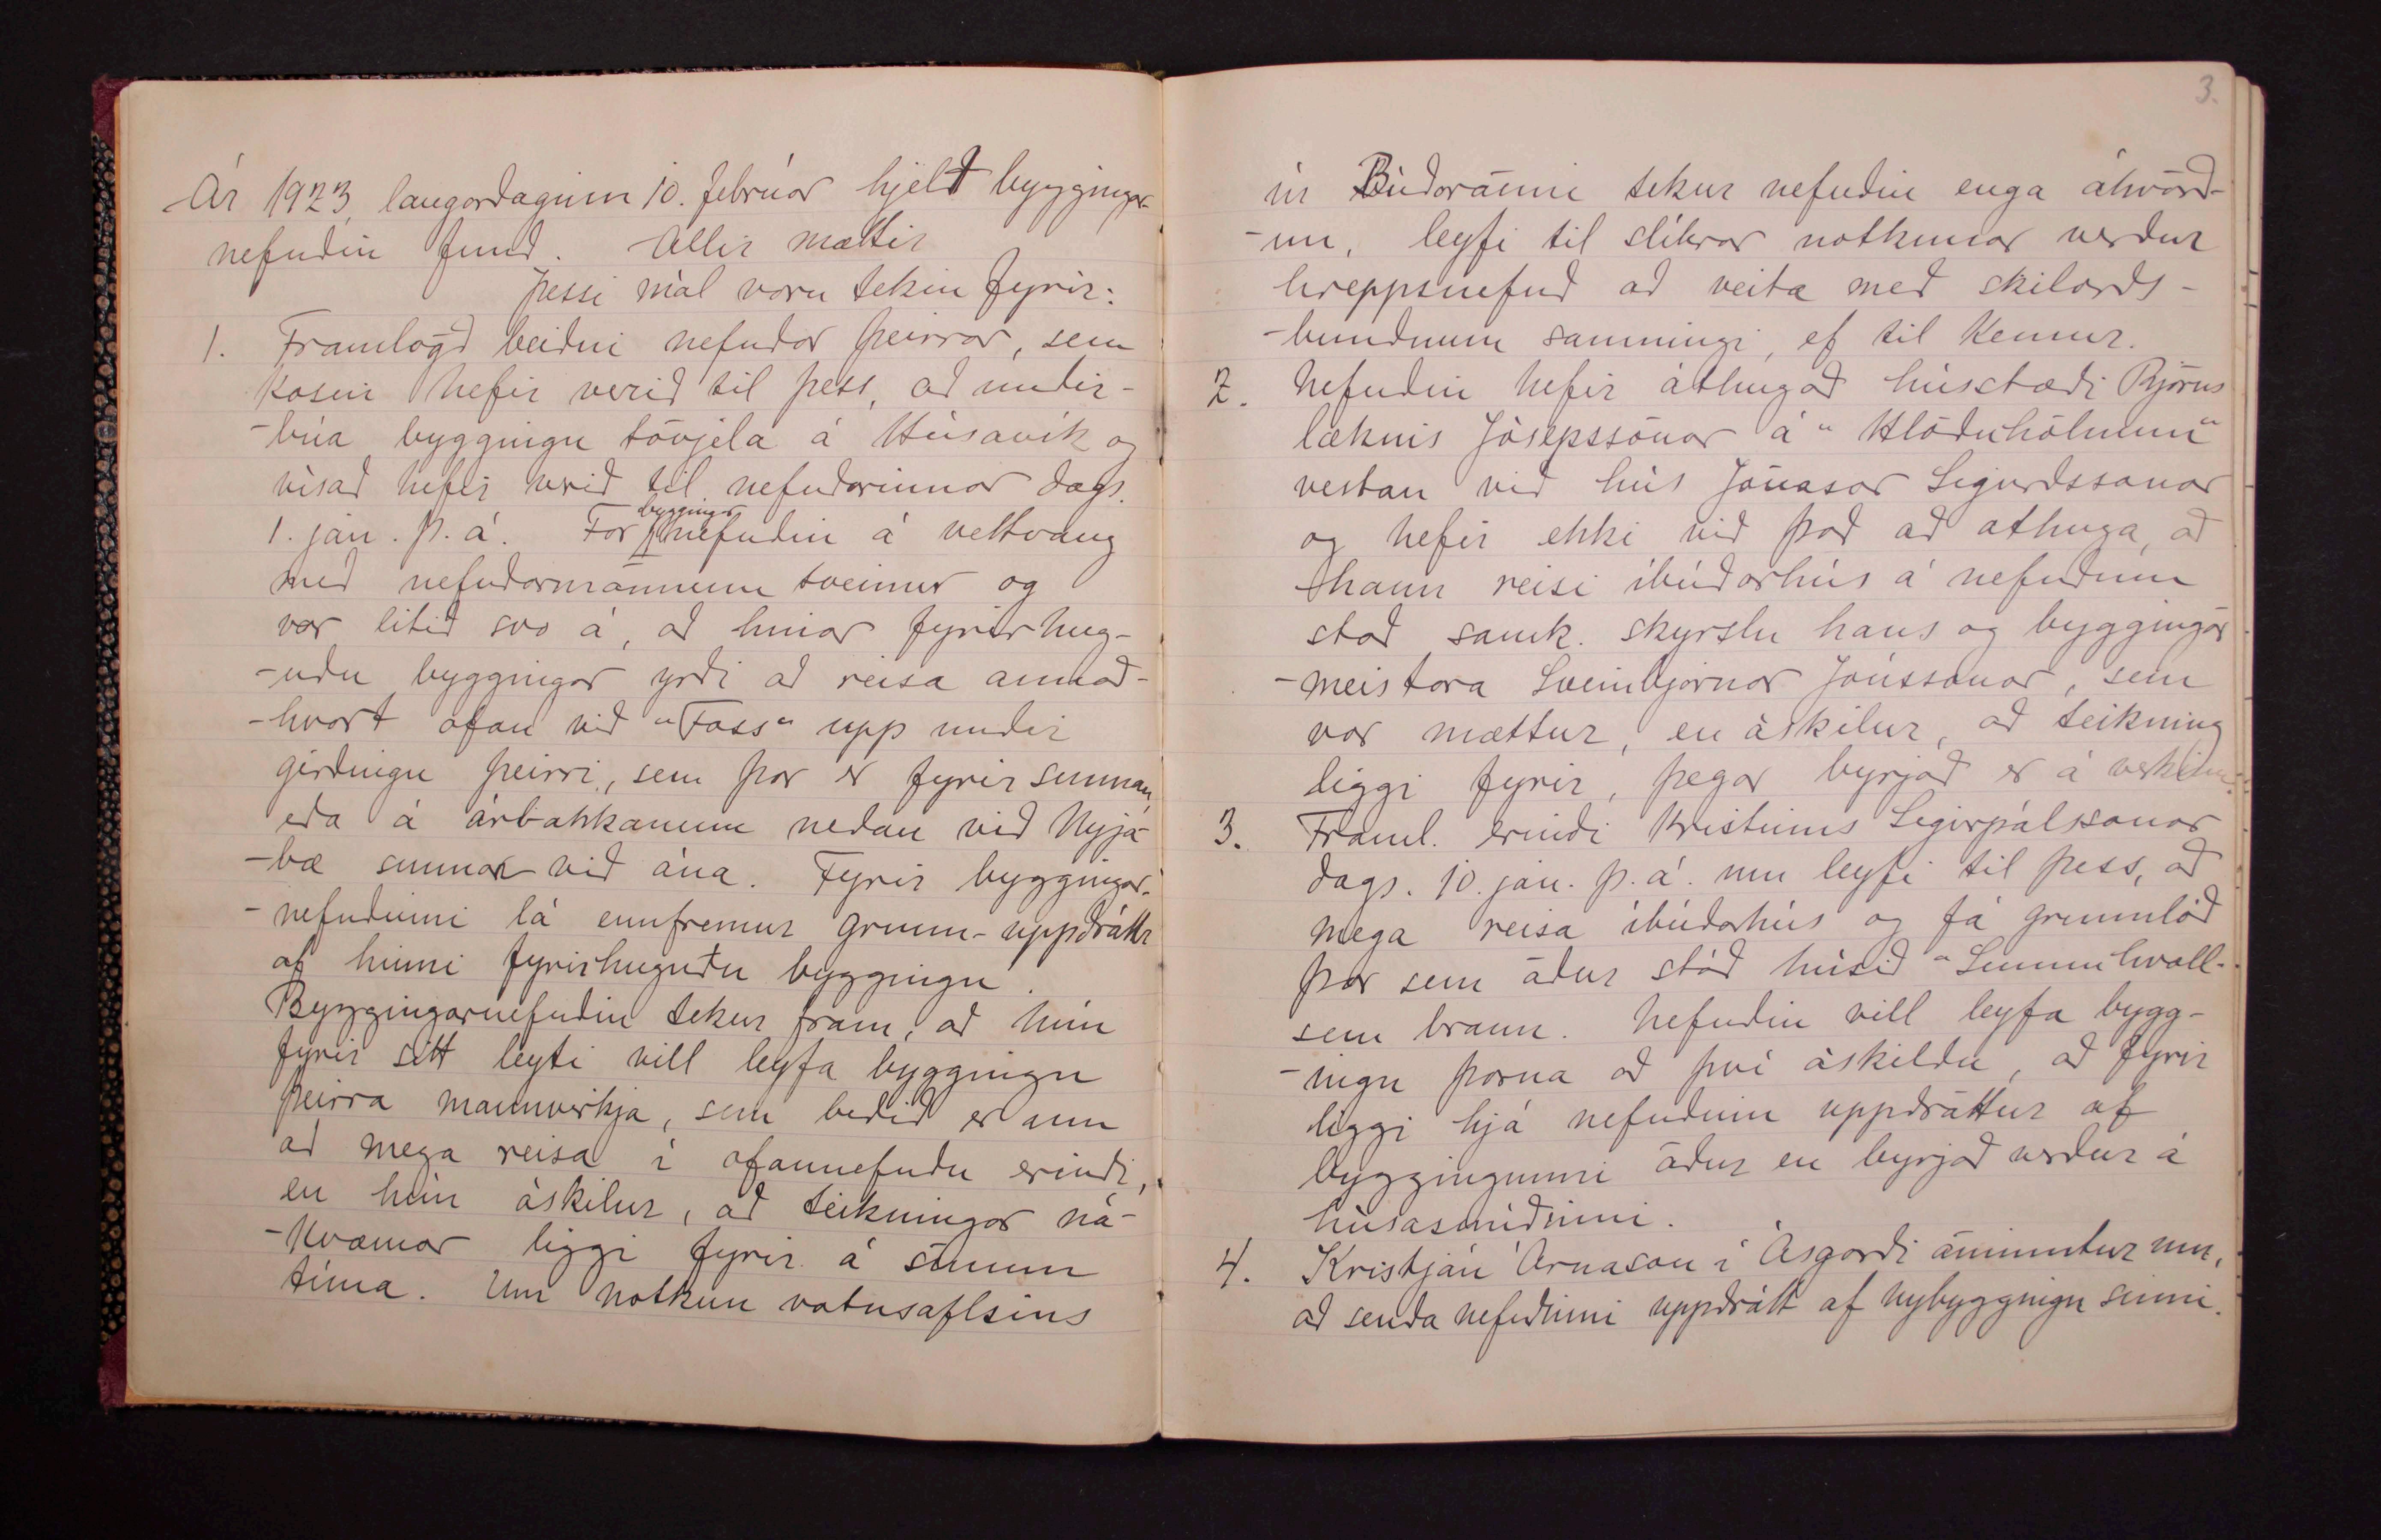 Ár 1923, laugardaginn 10. febrúar hjelt bygginga-
nefndin fund. Allir mættir
Þessi mál voru tekin fyrir:
1. Framlögð beiðni nefndar þeirrar, sem
kosin hefir verið til þess, að undir-
-búa byggingu tóvjela á Húsavík og
vísað hefir verið til nefndarinnar dags.
1. jan. þ.á. Fór byggingar nefndin á vettvang
með nefndarmönnum tveimur og
var litið svo á, að hinar fyrirhug-
-uðu byggingar yrði að reisa annað-
-hvort ofan við "Foss" upp undir
girðingu þeirri, sem þar er fyrir sunnan,
eða á árbakkanum neðan við Nýja-
-bæ sunnan við ána. Fyrir byggingar-
-nefndinni lá ennfremur grunn-uppdráttr
af hinni fyrirhuguðu byggingu.
Byggingarnefndin tekur fram, að hún
fyrir sitt leyti vill leyfa byggingu
þeirra mannvirkja, sem beðið er um
að mega reisa í ofannefndu erindi,
en hún áskilur, að teikningar ná-
-kvæmar liggi fyrir á sínum
tíma. Um notkun vatnsaflsins
3.
úr Búðaránni tekur nefndin enga ákvörð-
-un, leyfi til slíkrar notkunar verður
hreppsnefnd að veita með skilorðs-
-bundnum samningi, ef til kemur.
2. Nefndin hefir athugað hússtæði Björns
læknis Jósepssonar á "Hlöðuhólnum"
vestan við hús Jónasar Sigurðssonar
og hefir ekki við það að athuga, að
hann reisi íbúðarhús á nefndum
stað samk. skýrslu hans og bygginga-
-meistara Sveinbjarnar Jónssonar, sem
var mættur, en áskilur, að teikning
liggi fyrir, þegar byrjað er á verkinu.
3. Framl. erindi Kristins Sigurpálssonar
dags. 10. jan. þ.á. um leyfi til þess, að
mega reisa íbúðarhús og fá grunnlóð
þar sem áður stóð húsið "Sunnuhvoll"
sem brann. Nefndin vill leyfa bygg-
-ingu þarna að því áskildu, að fyrir
liggi hjá nefndinni uppdráttur af
byggingunni áður en byrjað verður á
húsasmíðinni.
4. Kristján Árnason í Ásgarði áminntur um,
að senda nefndinni uppdrátt af nýbyggingu sinni.